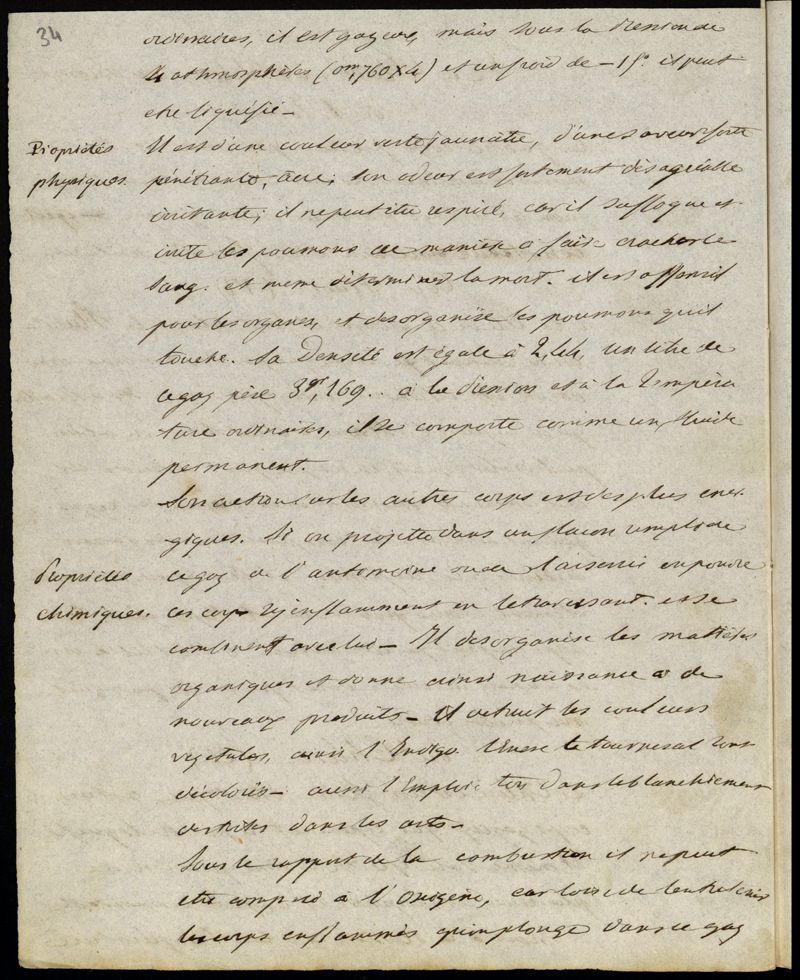 34
ordinaires, il est gazeux, mais sous la pression de
4 athmosphères (0m,760x4) et un froid de -15° il peut
etre liquifié -
Propriétés
physiques.
Il est d'une couleur verte jaunatre, d'une saveur forte
pénétrante, acre; son odeur est fortement désagréable
irritante; il ne peut etre respiré, car il suffoque et
irrite les poumons de maniere a faire cracher le
sang. et meme déterminer la mort. il est offensif
pour les organes, et desorganise les poumons qu'il
touche. Sa Densité est égale à 2,44, un litre de
ce gaz pèse 3gr,169.. à la Pression et à la Tempéra
ture ordinaires, il se comporte comme un fluide
permanent.
Son action sur les autres corps est des plus éner-
giques. Si on projette dans un flacon rempli de
Propriétés
chimiques.
ce gaz de l'antimoine ou de l'arsenic en poudre
ces corps s'y enflamment en le traversant. et se
combinent avec lui - Il desorganise les matières
organiques et donne ainsi naissance a de
nouveaux produits - Il detruit les couleurs
vegetales, ainsi l'Indigo l'encre le tournesol sont
décolorés - aussi l'emploie t'on dans le blanchiment
des toiles dans les arts -
Sous le rapport de la combustion il ne peut
etre comparé à l'Oxigène, car loin de l'entretenir
les corps enflammés qu'on plonge dans ce gaz